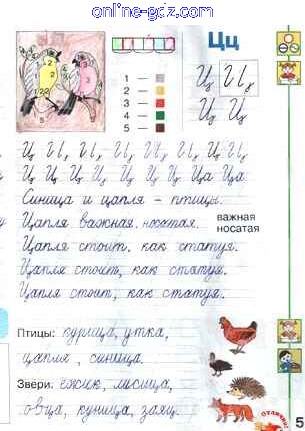 online-gdz.com
Цц
1 —
2 —
3 —
4 —
5 —
Ц Ц
Ц Ц Ц Ц Ц Ц Ц Ц
Ц Ц Ц Ц Ц Ц Ц Ца Ца
Синица и цапля – птицы.
Цапля важная, носатая.
важная
носатая
Цапля стоит, как статуя.
Цапля стоит, как статуя.
Цапля стоит, как статуя.
Птицы: курица, утка,
цапля, синица.
Звери: ёжик, лисица,
овца, куница, заяц.
5